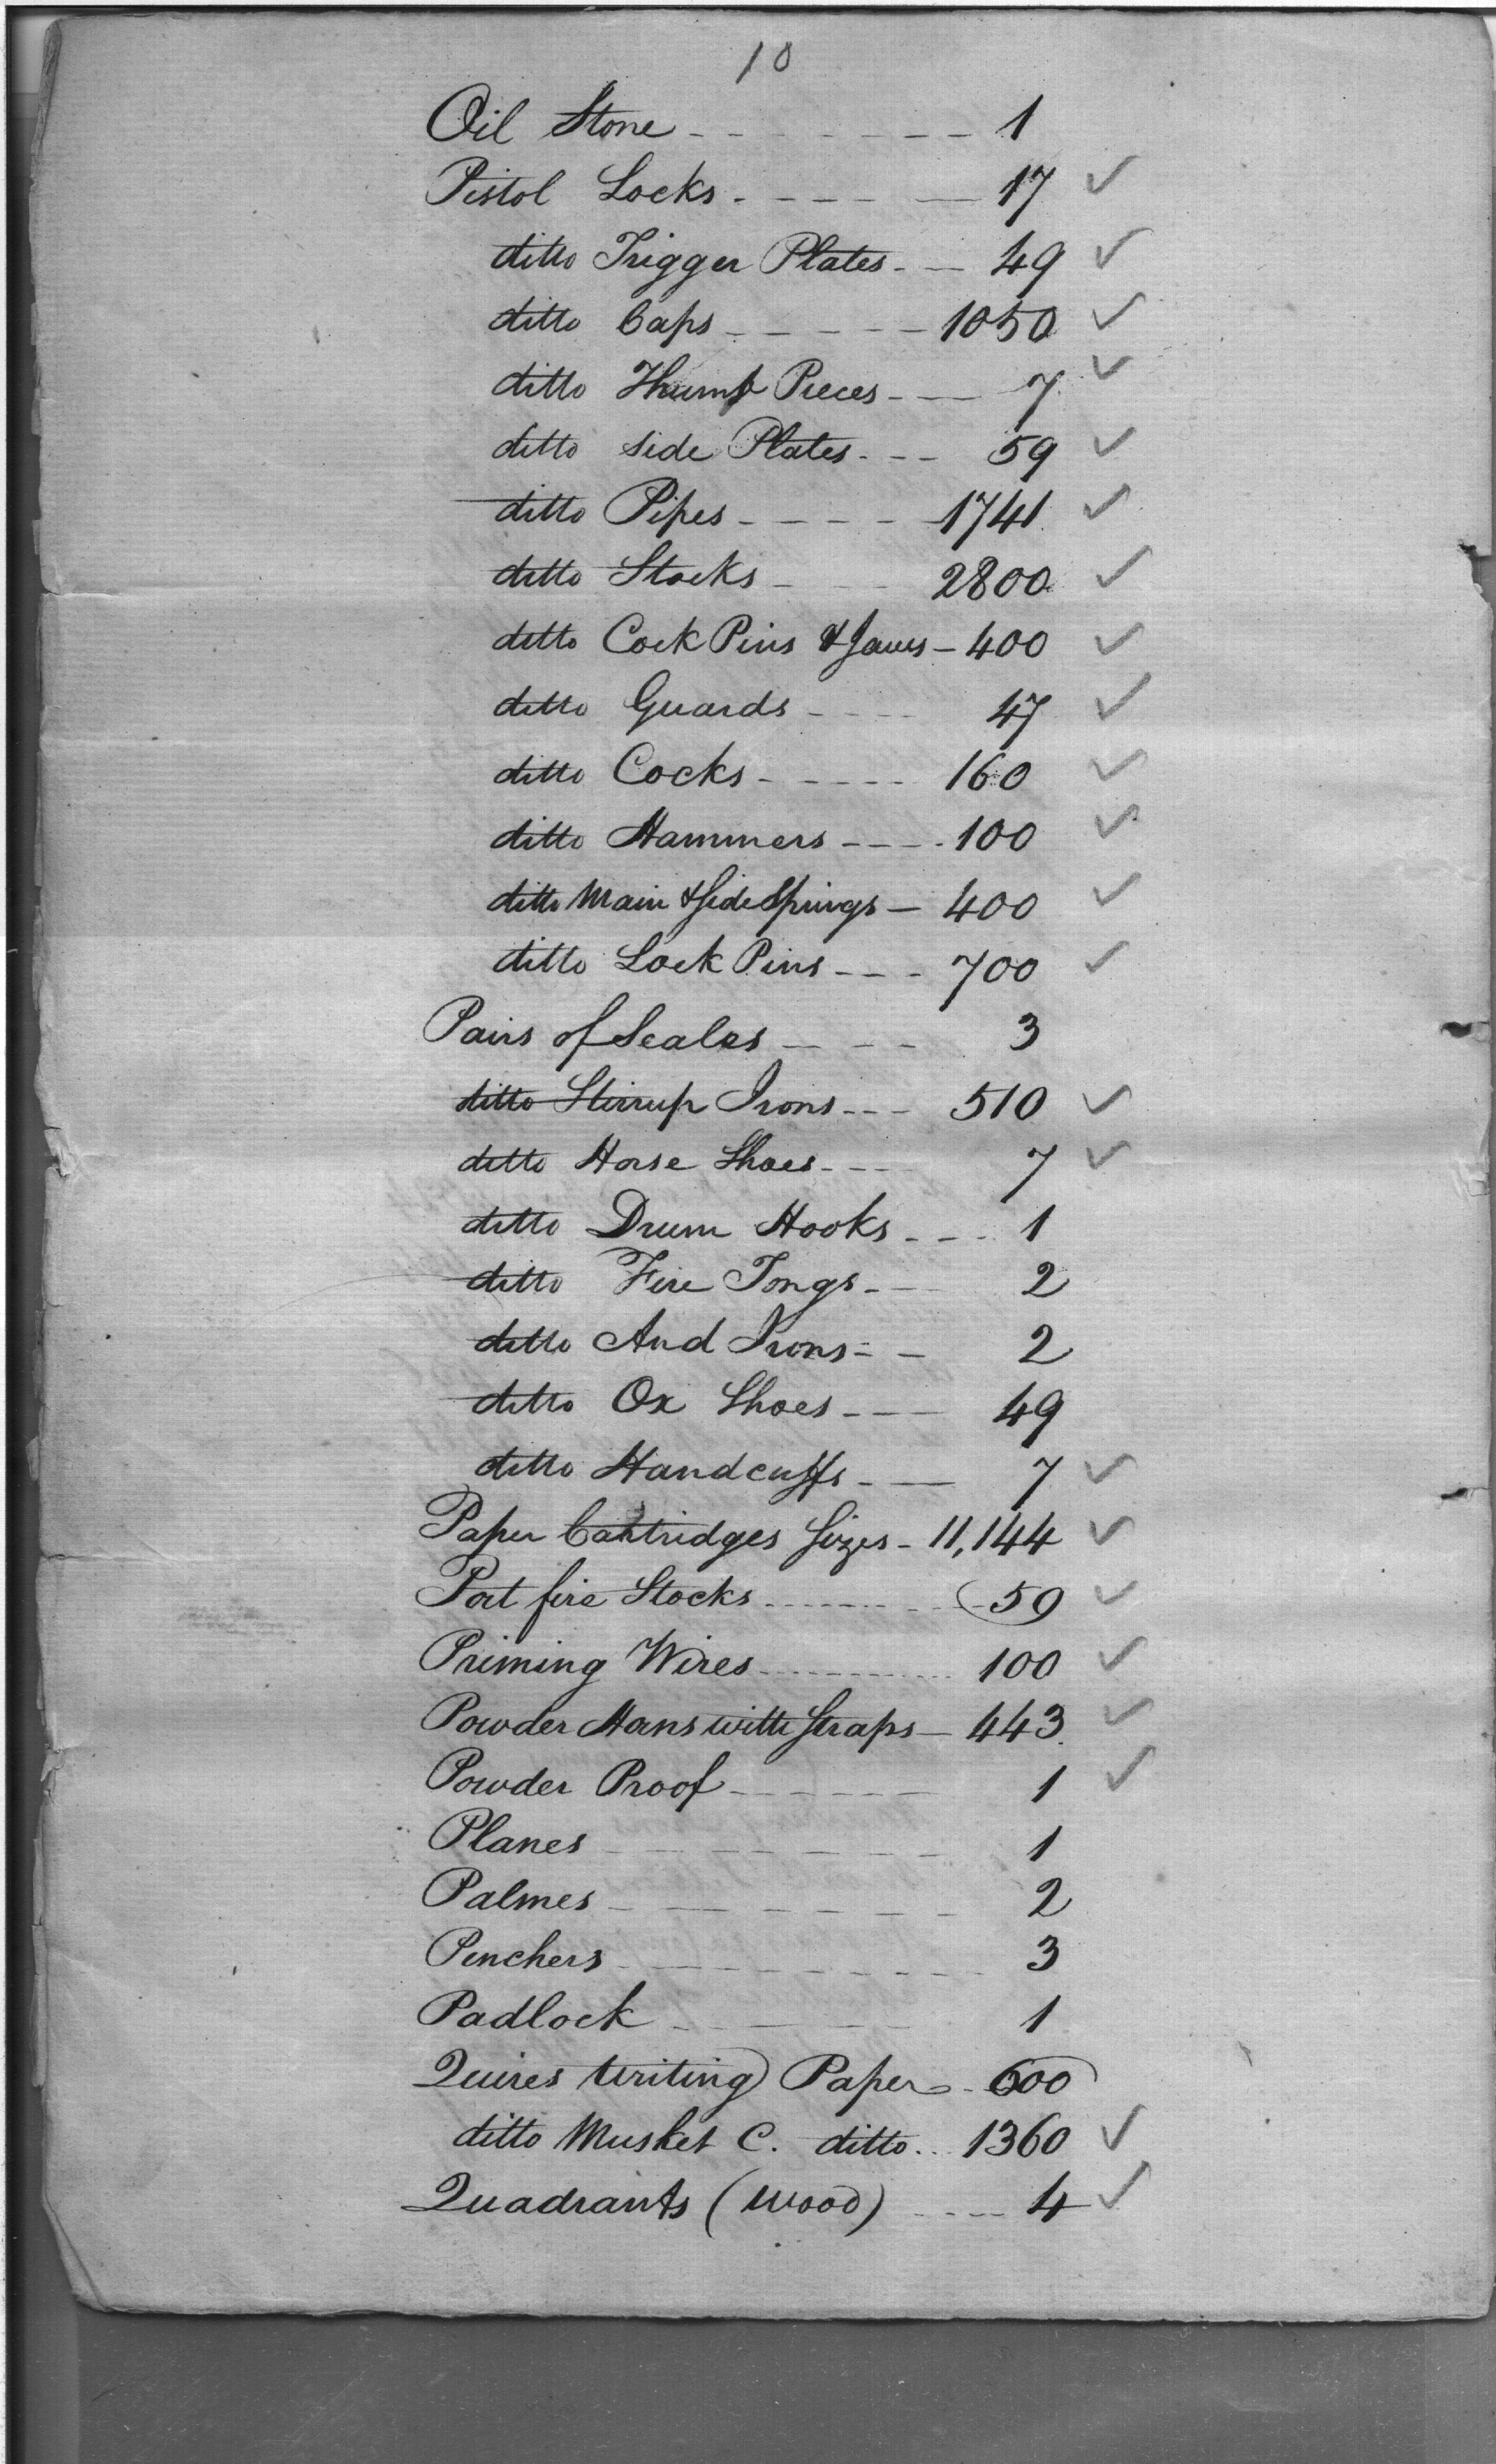 10
Oil Stone - - - - - - - 1
Pistol Locks - - - - - 17 ✓
ditto Trigger Plates - - 49 ✓
ditto Caps - - - - - 1050 ✓
ditto Thumb Pieces - - 7 ✓
ditto side Plates - - - 59 ✓
ditto Pipes - - - - 1741 ✓
ditto Stocks - - - 2800 ✓
ditto Cock Pins & Jaws - 400 ✓
ditto Guards - - - 47 ✓
ditto Cocks - - - - - 160 ✓
ditto Hammers - - - - 100 ✓
ditto Main & Side Springs - 400 ✓
ditto Lock Pins - - - 700 ✓
Pairs of Scales - - - 3
ditto Stirrup Irons - - - 510 ✓
ditto Horse Shoes - - - 7 ✓
ditto Drum Hooks - - - 1
ditto Fire Tongs - - 2
ditto And Irons - - 2
ditto Ox Shoes - - - 49
ditto Handcuffs - - 7 ✓
Paper Cartridges Sizes - 11,144 ✓
Port fire Stocks - - - - 59 ✓
Priming Wires - - - - 100 ✓
Powder Horns with Straps - 443 ✓
Powder Proof - - - - - 1 ✓
Planes - - - - - - - 1
Palmes - - - - - - - 2
Penchers - - - - - - - 3
Padlock - - - - - 1
Quires Writing Paper - 600
ditto Musket C. ditto .. 1360 ✓
Quadrants (wood) - - - - 4 ✓